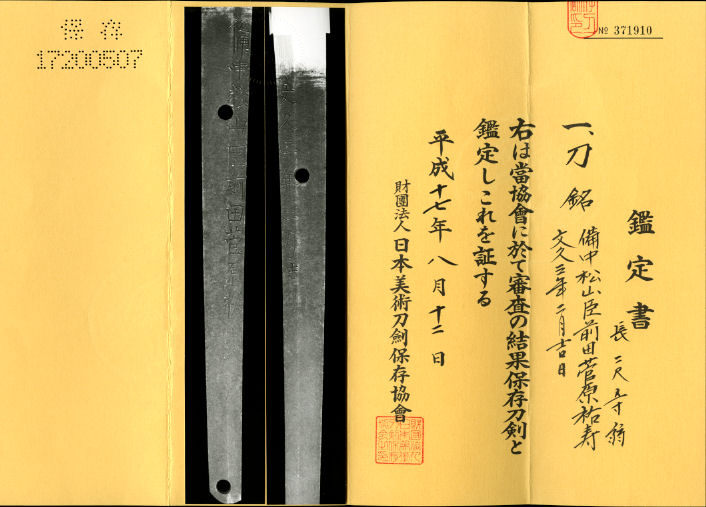 № 371910
鑑定書
一、刀 銘 備中松山臣前田菅原祐寿
文久三年二月吉日
長 二尺五寸
右は當協會に於て審査の結果保存刀剣と
鑑定しこれを証する
平成十七年八月十二日
財團法人 日本美術刀劍保存協會
保存
17200507